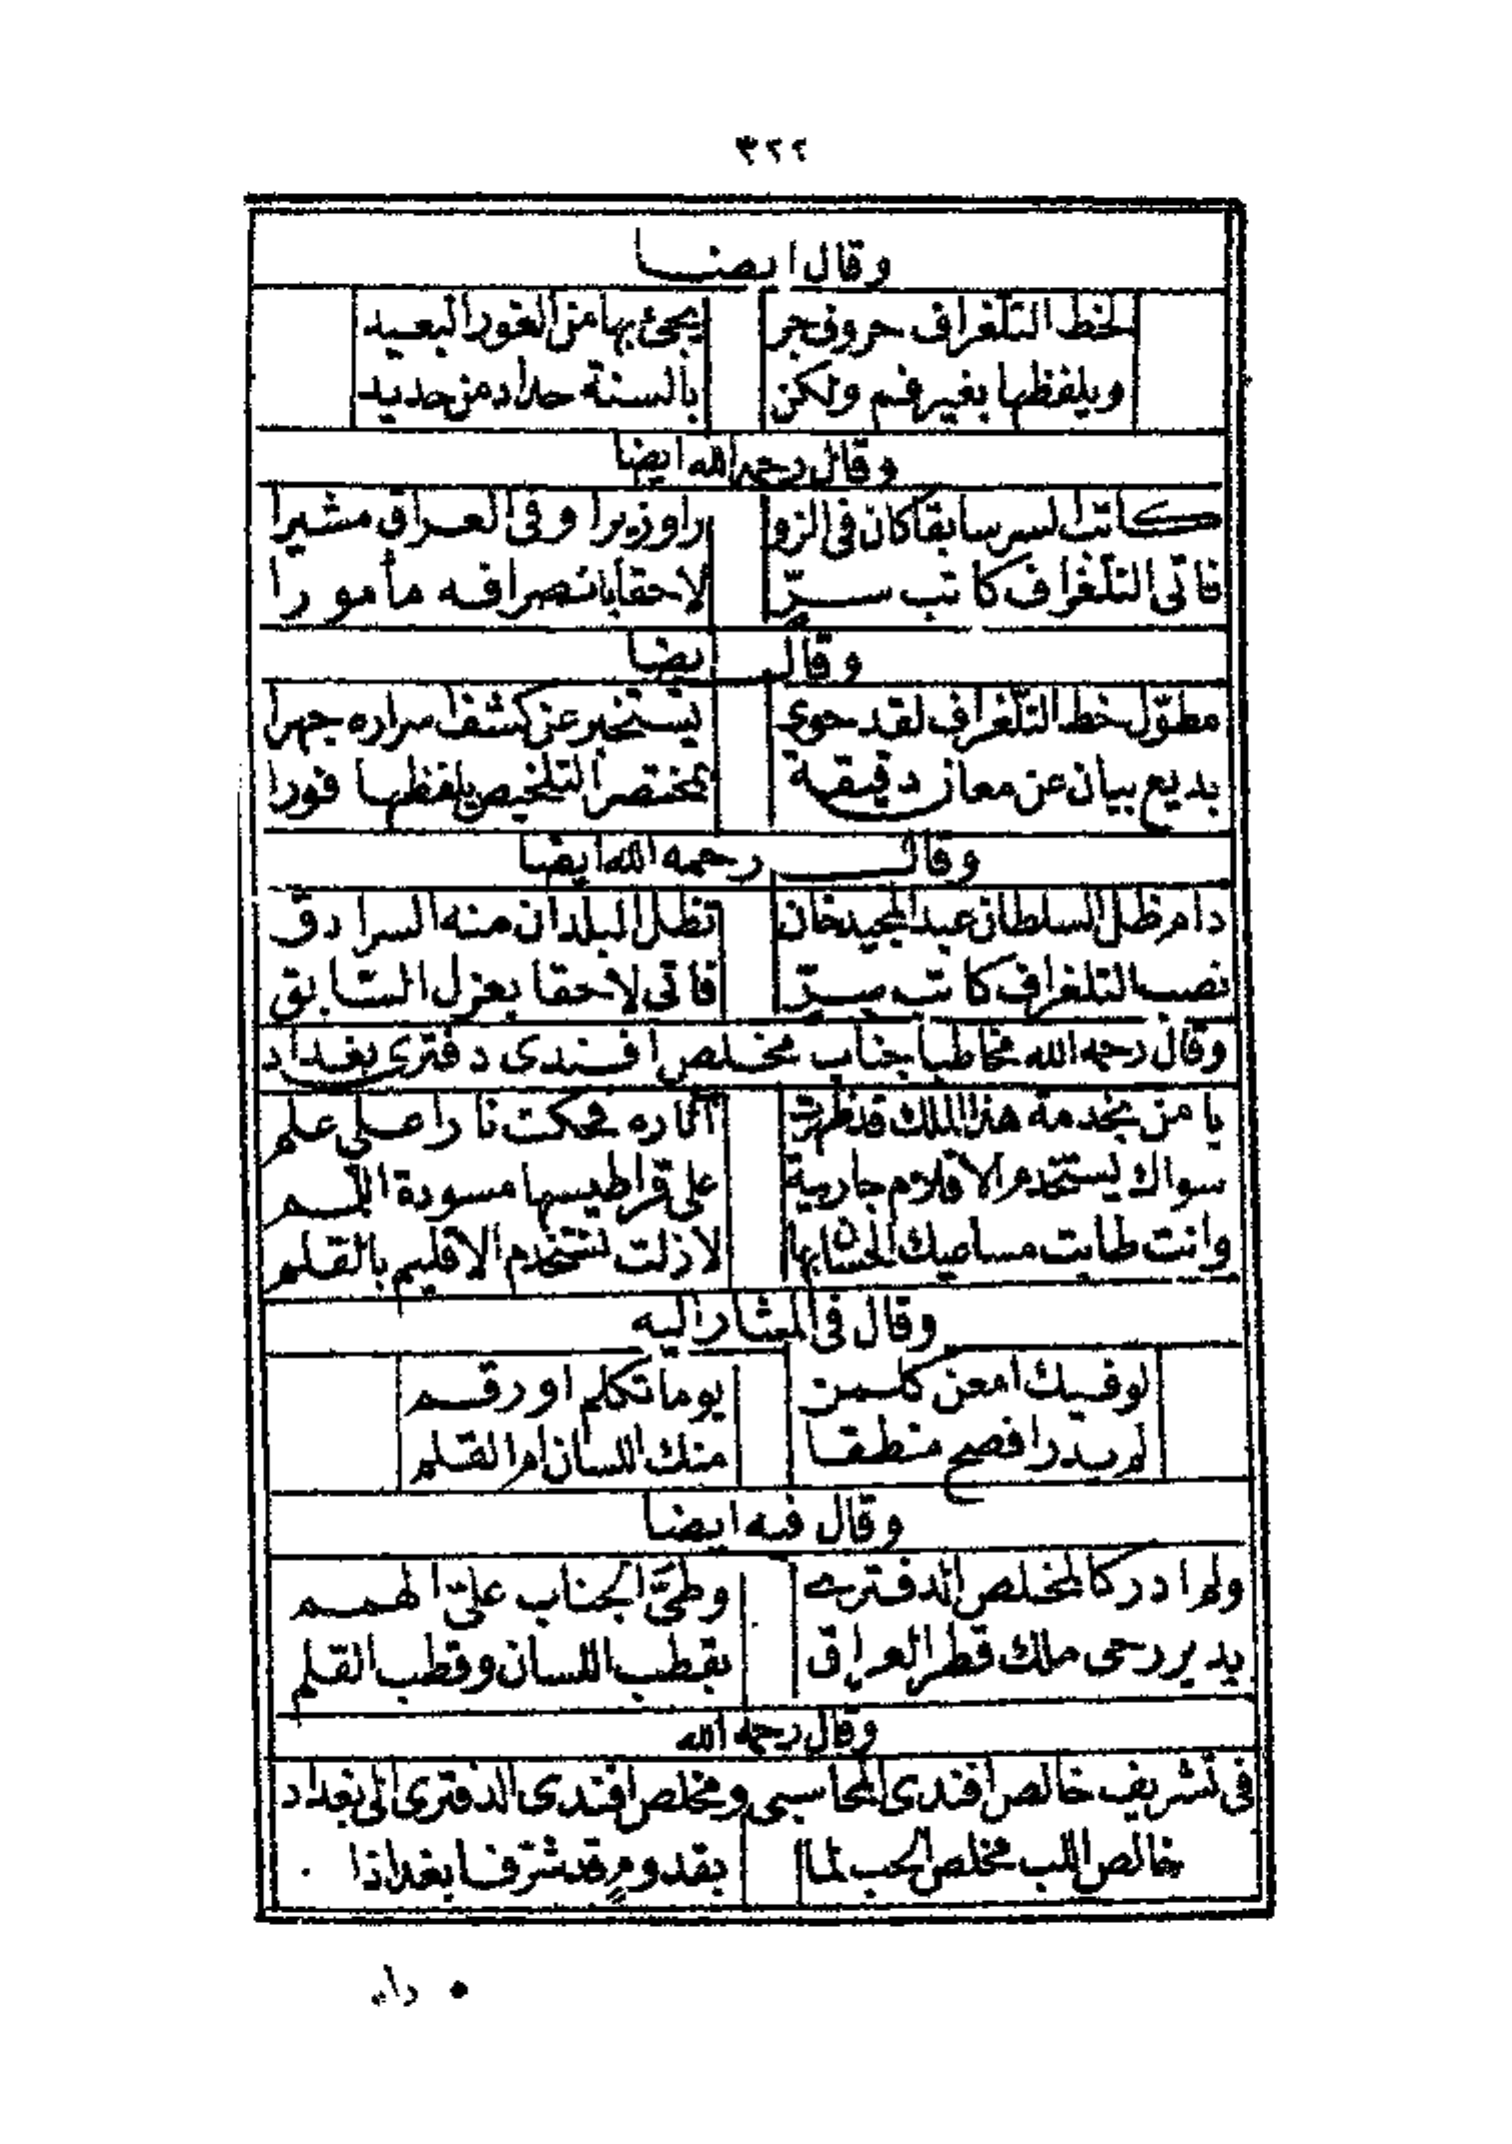 ٣٢٢
وقال ايضا
لخط التلغراف حروف جر يجئ بها من الغور البعيد
ويلفظها بغير فم ولكن بألسنة حداد من حديد
وقال رحمه الله ايضا
كاتب السر سابقا كان في الزو راوزيرا وفي العراق مشيرا
فاتى التلغراف كاتب سرّ لاحقا بانصرافه مأمورا
وقال ايضا
مطوّل خط التلغراف لقد حوى يستخبر عن كشف اسراره جهرا
بديع بيان عن معان دقيقة بمختصر التلخيص يلفظها فورا
وقال رحمه الله ايضا
دام ظل السلطان عبد المجيد خان تظل البلدان منه السرادق
نصب التلغراف كاتب سرّ فاتى لاحقا بعزل السابق
وقال رحمه الله مخاطبا جناب مخلص افندى دفترى بغداد
يا من بخدمة هذا الملك قد ظهرت آثاره فحكت نارا على علم
سواك يستخدم الاقلام جارية على قراطيسها مسودة اللمم
وانت طابت مساعيك الحسان بها لازلت تستخدم الاقليم بالقلم
وقال في المشار اليه
لو فيك امعن كل من يوما تكلم او رقم
لم يدر افصح منطقا منك اللسان ام القلم
وقال فيه ايضا
ولم ادر كالمخلص الدفترى وطئ الجناب علىّ الهمم
يدير رحى ملك قطر العراق بقطب اللسان وقطب القلم
وقال رحمه الله
في تشريف خالص افندى المحاسبى ومخلص افندى الدفترى الى بغداد
خالص اللب مخلص الحب لما بقدوم قد شرّفا بغداذا